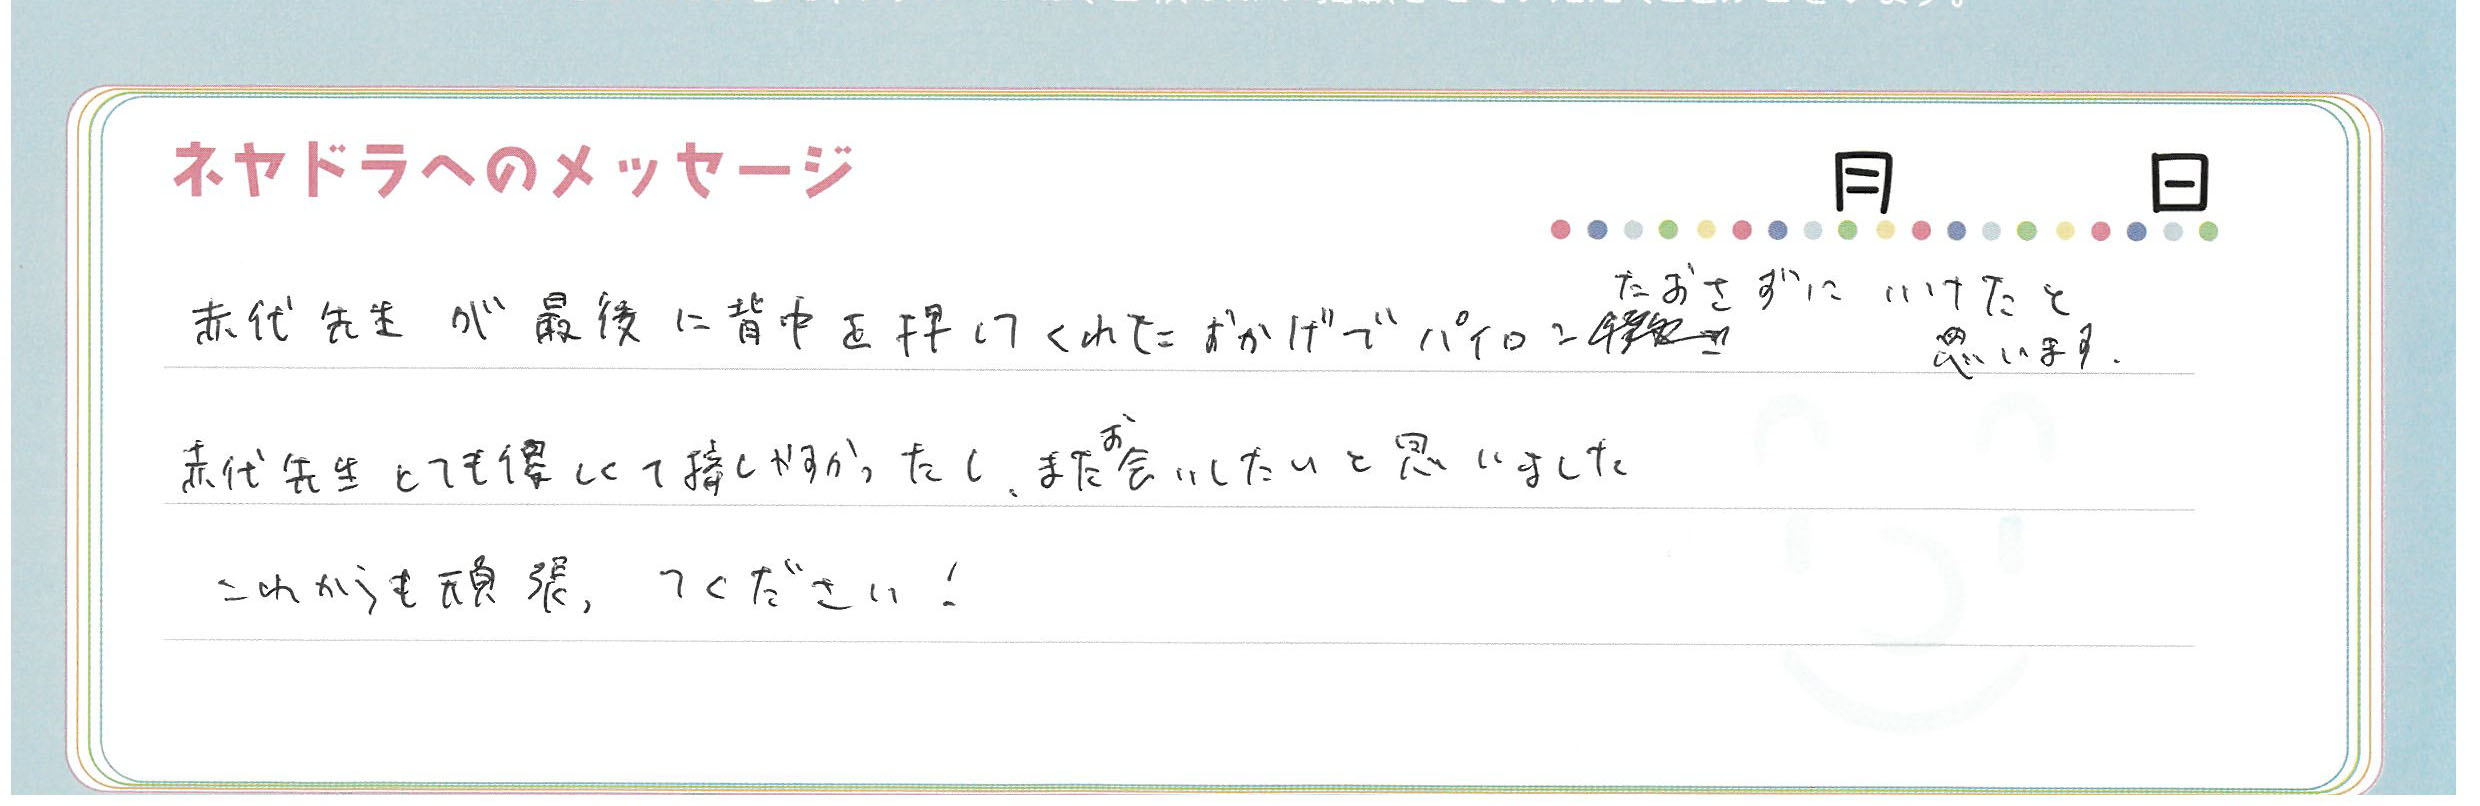 ネヤドラへのメッセージ
月 日
赤代先生が最後に背中を押してくれたおかげでパイロンたおさずにいけたと
思います.
赤代先生とても優しくて接しやすかったし、またお会いしたいと思いました
これからも頑張ってください!